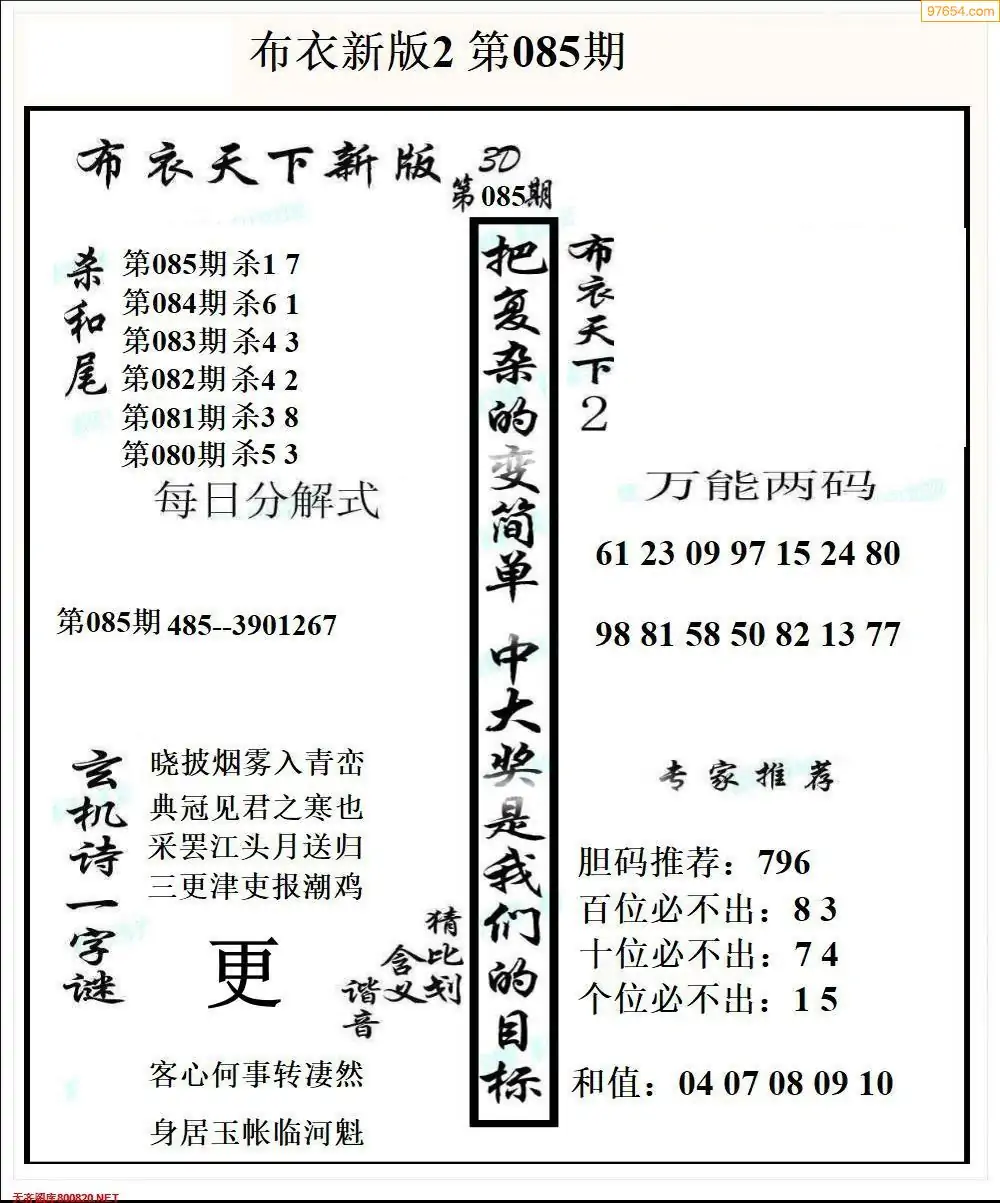 97654.com
布衣新版2 第085期
布衣天下新版 3D
第085期
杀和尾
第085期 杀1 7
第084期 杀6 1
第083期 杀4 3
第082期 杀4 2
第081期 杀3 8
第080期 杀5 3
每日分解式
第085期 485--3901267
玄机诗一字谜
晓披烟雾入青峦
典冠见君之寒也
采罢江头月送归
三更津吏报潮鸡
更
猜比划
含义
谐音
客心何事转凄然
身居玉帐临河魁
把复杂的变简单 中大奖是我们的目标
布衣天下2
万能两码
61 23 09 97 15 24 80
98 81 58 50 82 13 77
专家推荐
胆码推荐：796
百位必不出：8 3
十位必不出：7 4
个位必不出：1 5
和值：04 07 08 09 10
天齐图库800820.NET